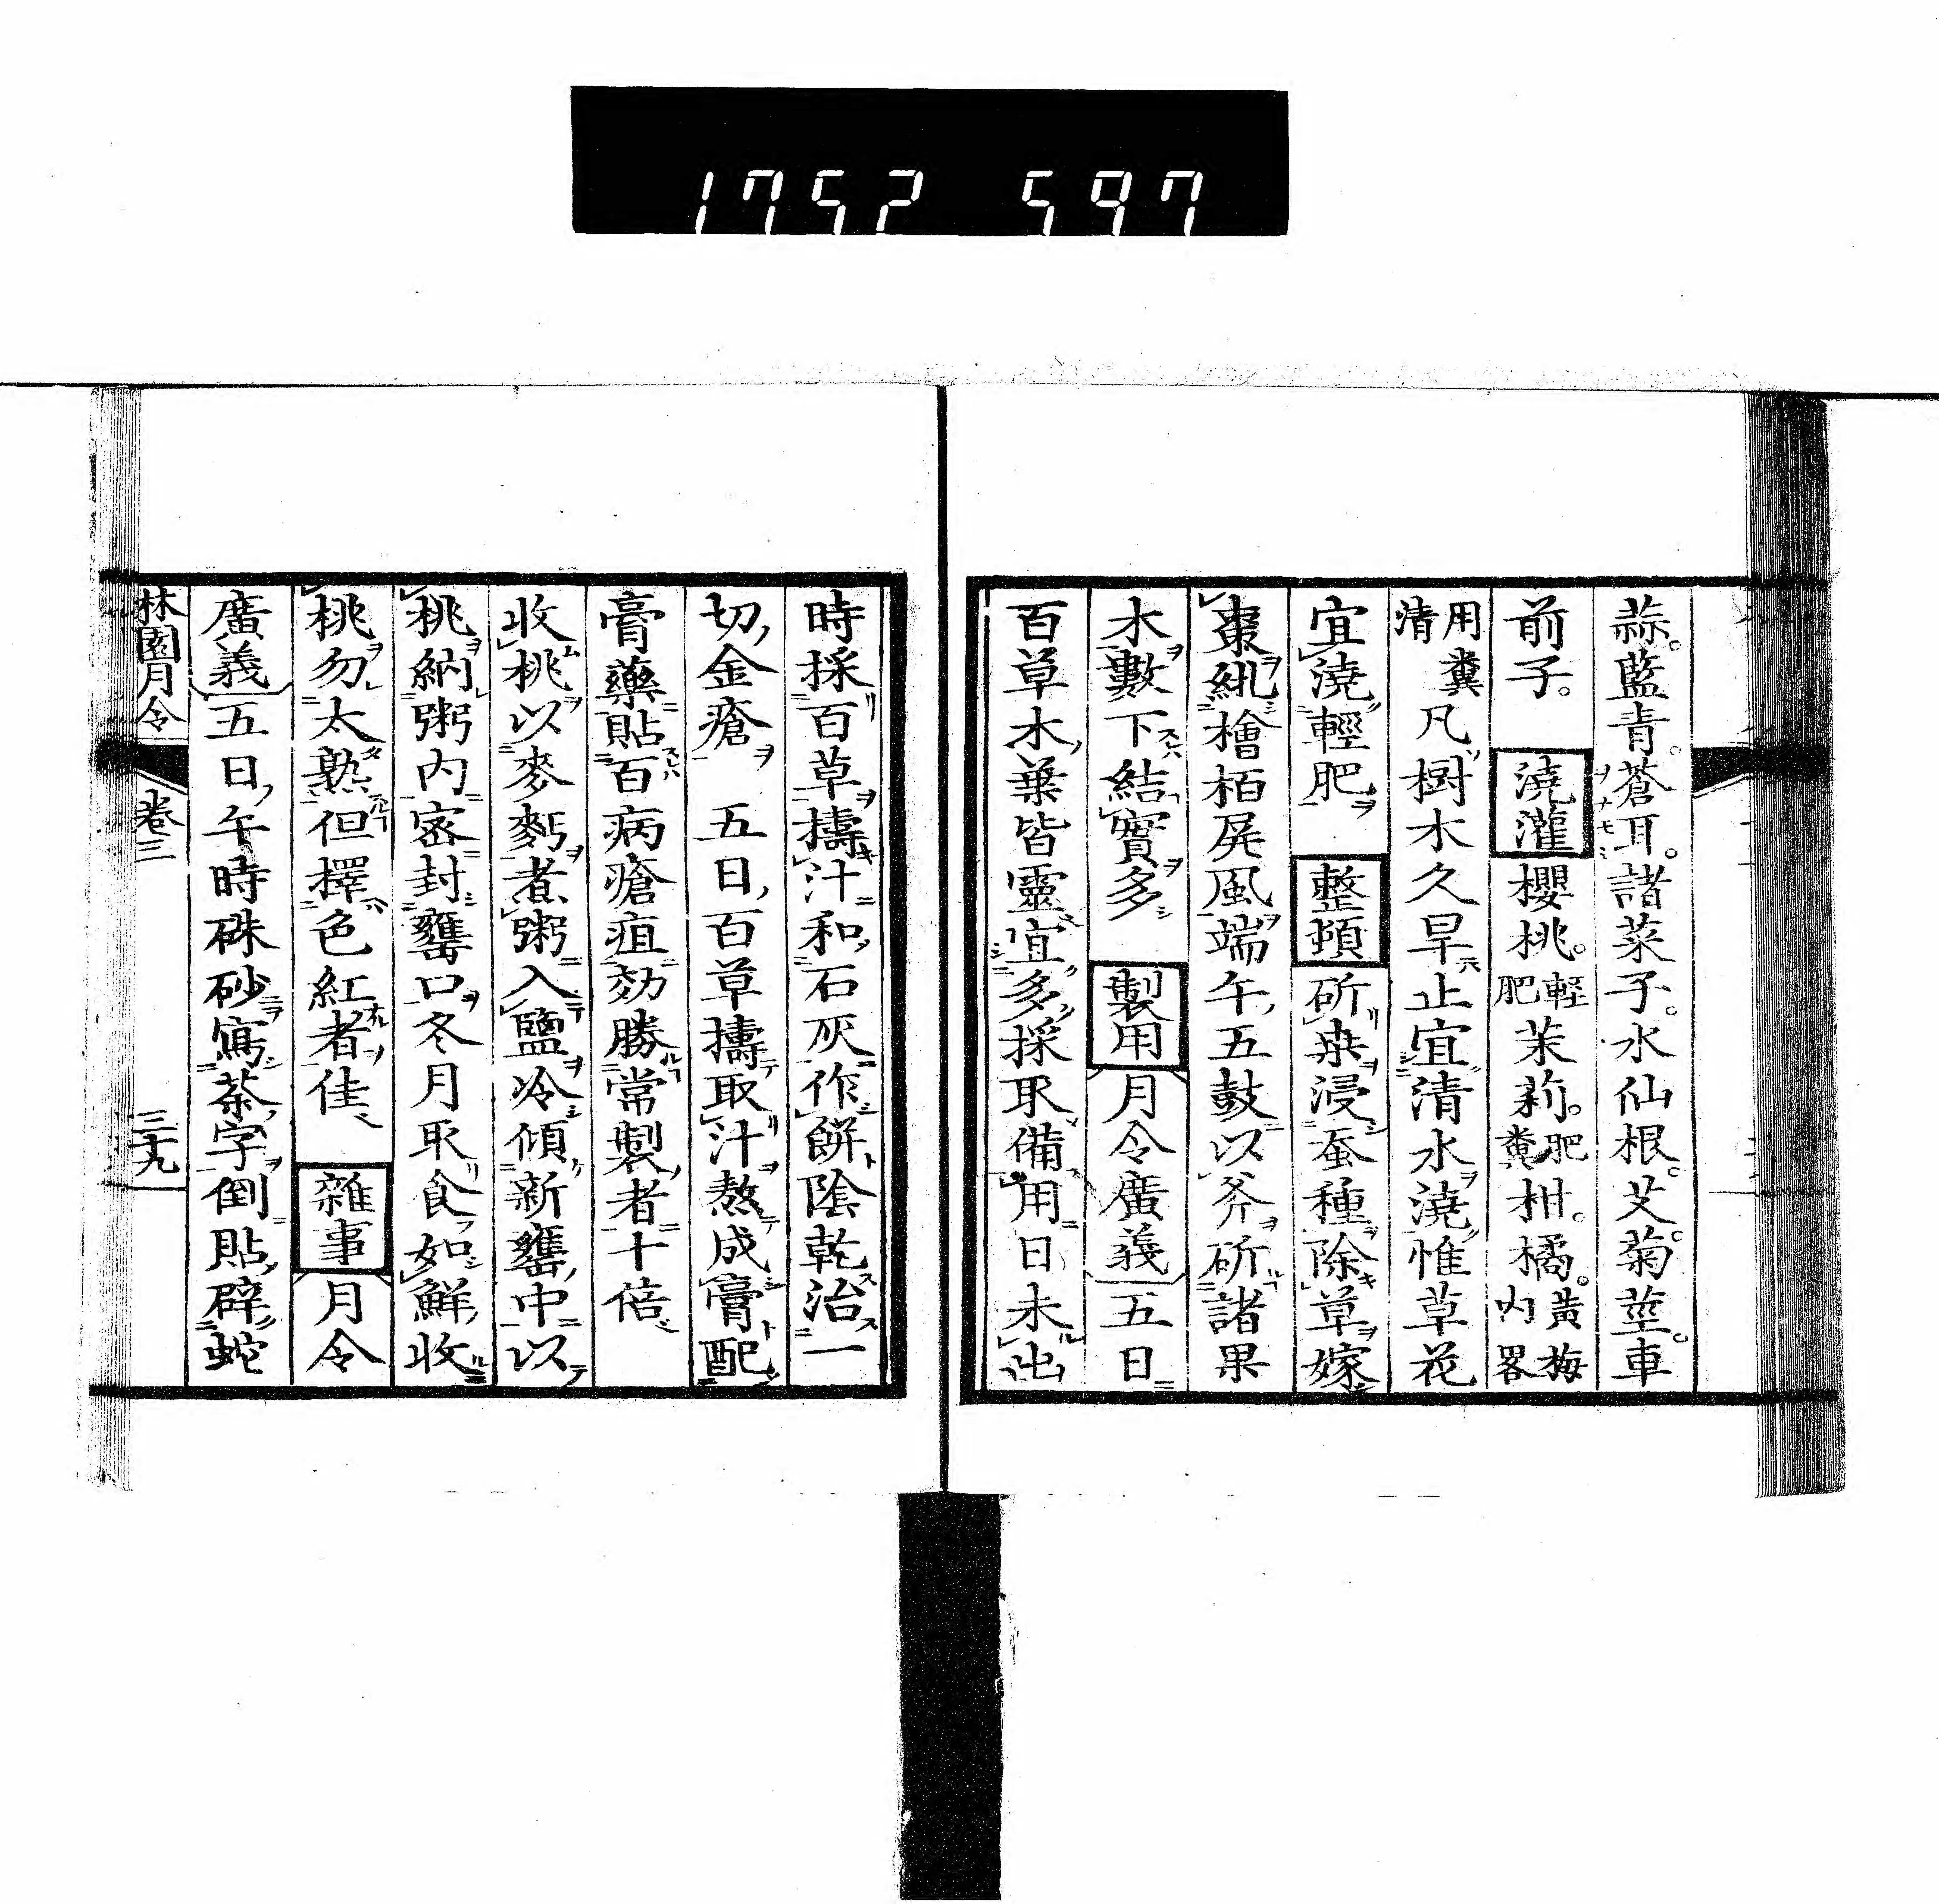 1752 597
蒜。藍青。蒼耳。諸菜子。水仙根。艾。菊莖。車
前子。澆灌櫻桃。輕肥茉莉。肥糞柑。橘。黃梅內畧
用糞清凡樹木久旱止宜清水澆惟草花
宜澆輕肥 整頓斫桒浸蚕種除草嫁
棗絁檜栢屏風端午五鼓以斧斫諸果
木數下結實多 製用月令廣義五日
百草木葉皆靈宜多採取備用日未出
時採百草擣汁和石灰作餅陰乾治一
切金瘡 五日百草擣取汁熬成膏配
膏藥貼百病瘡疽効勝常製者十倍
收桃以麥麪煮粥入鹽冷傾新甕中以
桃納粥內密封甕口冬月取食如鮮收
桃勿太熟但擇色紅者佳 雜事月令
廣義五日午時硃砂寫茶字倒貼辟蛇
林園月令 卷三 三十九